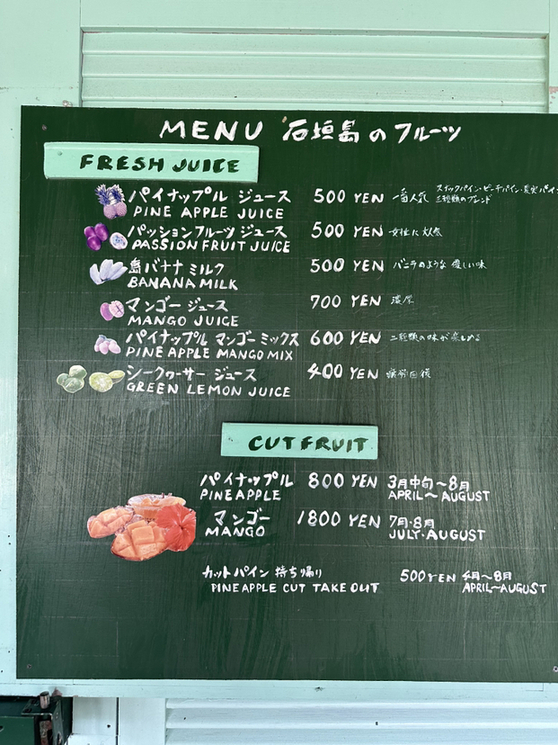 MENU 石垣島のフルーツ
FRESH JUICE
パイナップル ジュース 500 YEN 一番人気 スナックパイン・ピーチパイン・
PINE APPLE JUICE 三種類のブレンド
パッションフルーツ ジュース 500 YEN 女性に大人気
PASSION FRUIT JUICE
島バナナ ミルク 500 YEN バニラのような 優しい味
BANANA MILK
マンゴー ジュース 700 YEN 濃厚
MANGO JUICE
パイナップル マンゴー ミックス 600 YEN 二種類の味が楽しめる
PINE APPLE MANGO MIX
シークヮーサー ジュース 400 YEN 疲労回復
GREEN LEMON JUICE
CUT FRUIT
パイナップル 800 YEN 3月中旬〜8月
PINEAPPLE APRIL〜AUGUST
マンゴー 1800 YEN 7月・8月
MANGO JULY・AUGUST
カットパイン 持ち帰り 500 YEN 4月〜8月
PINEAPPLE CUT TAKE OUT APRIL〜AUGUST